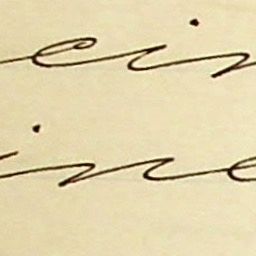 ein
ine